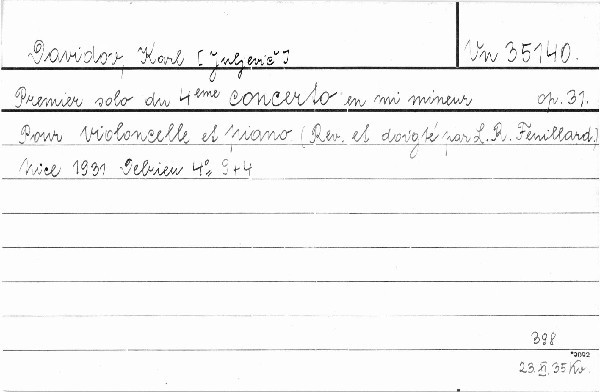 Davidov, Karl [Juljevič] Vn 35140.
Premier solo du 4ème concerto en mi mineur op. 31.
Pour violoncelle et piano (Rev. et doigté par L. R. Feuillard.)
Nice 1931 Delrieu 4° 9+4
398
*3092
23.XI.35 Kv.